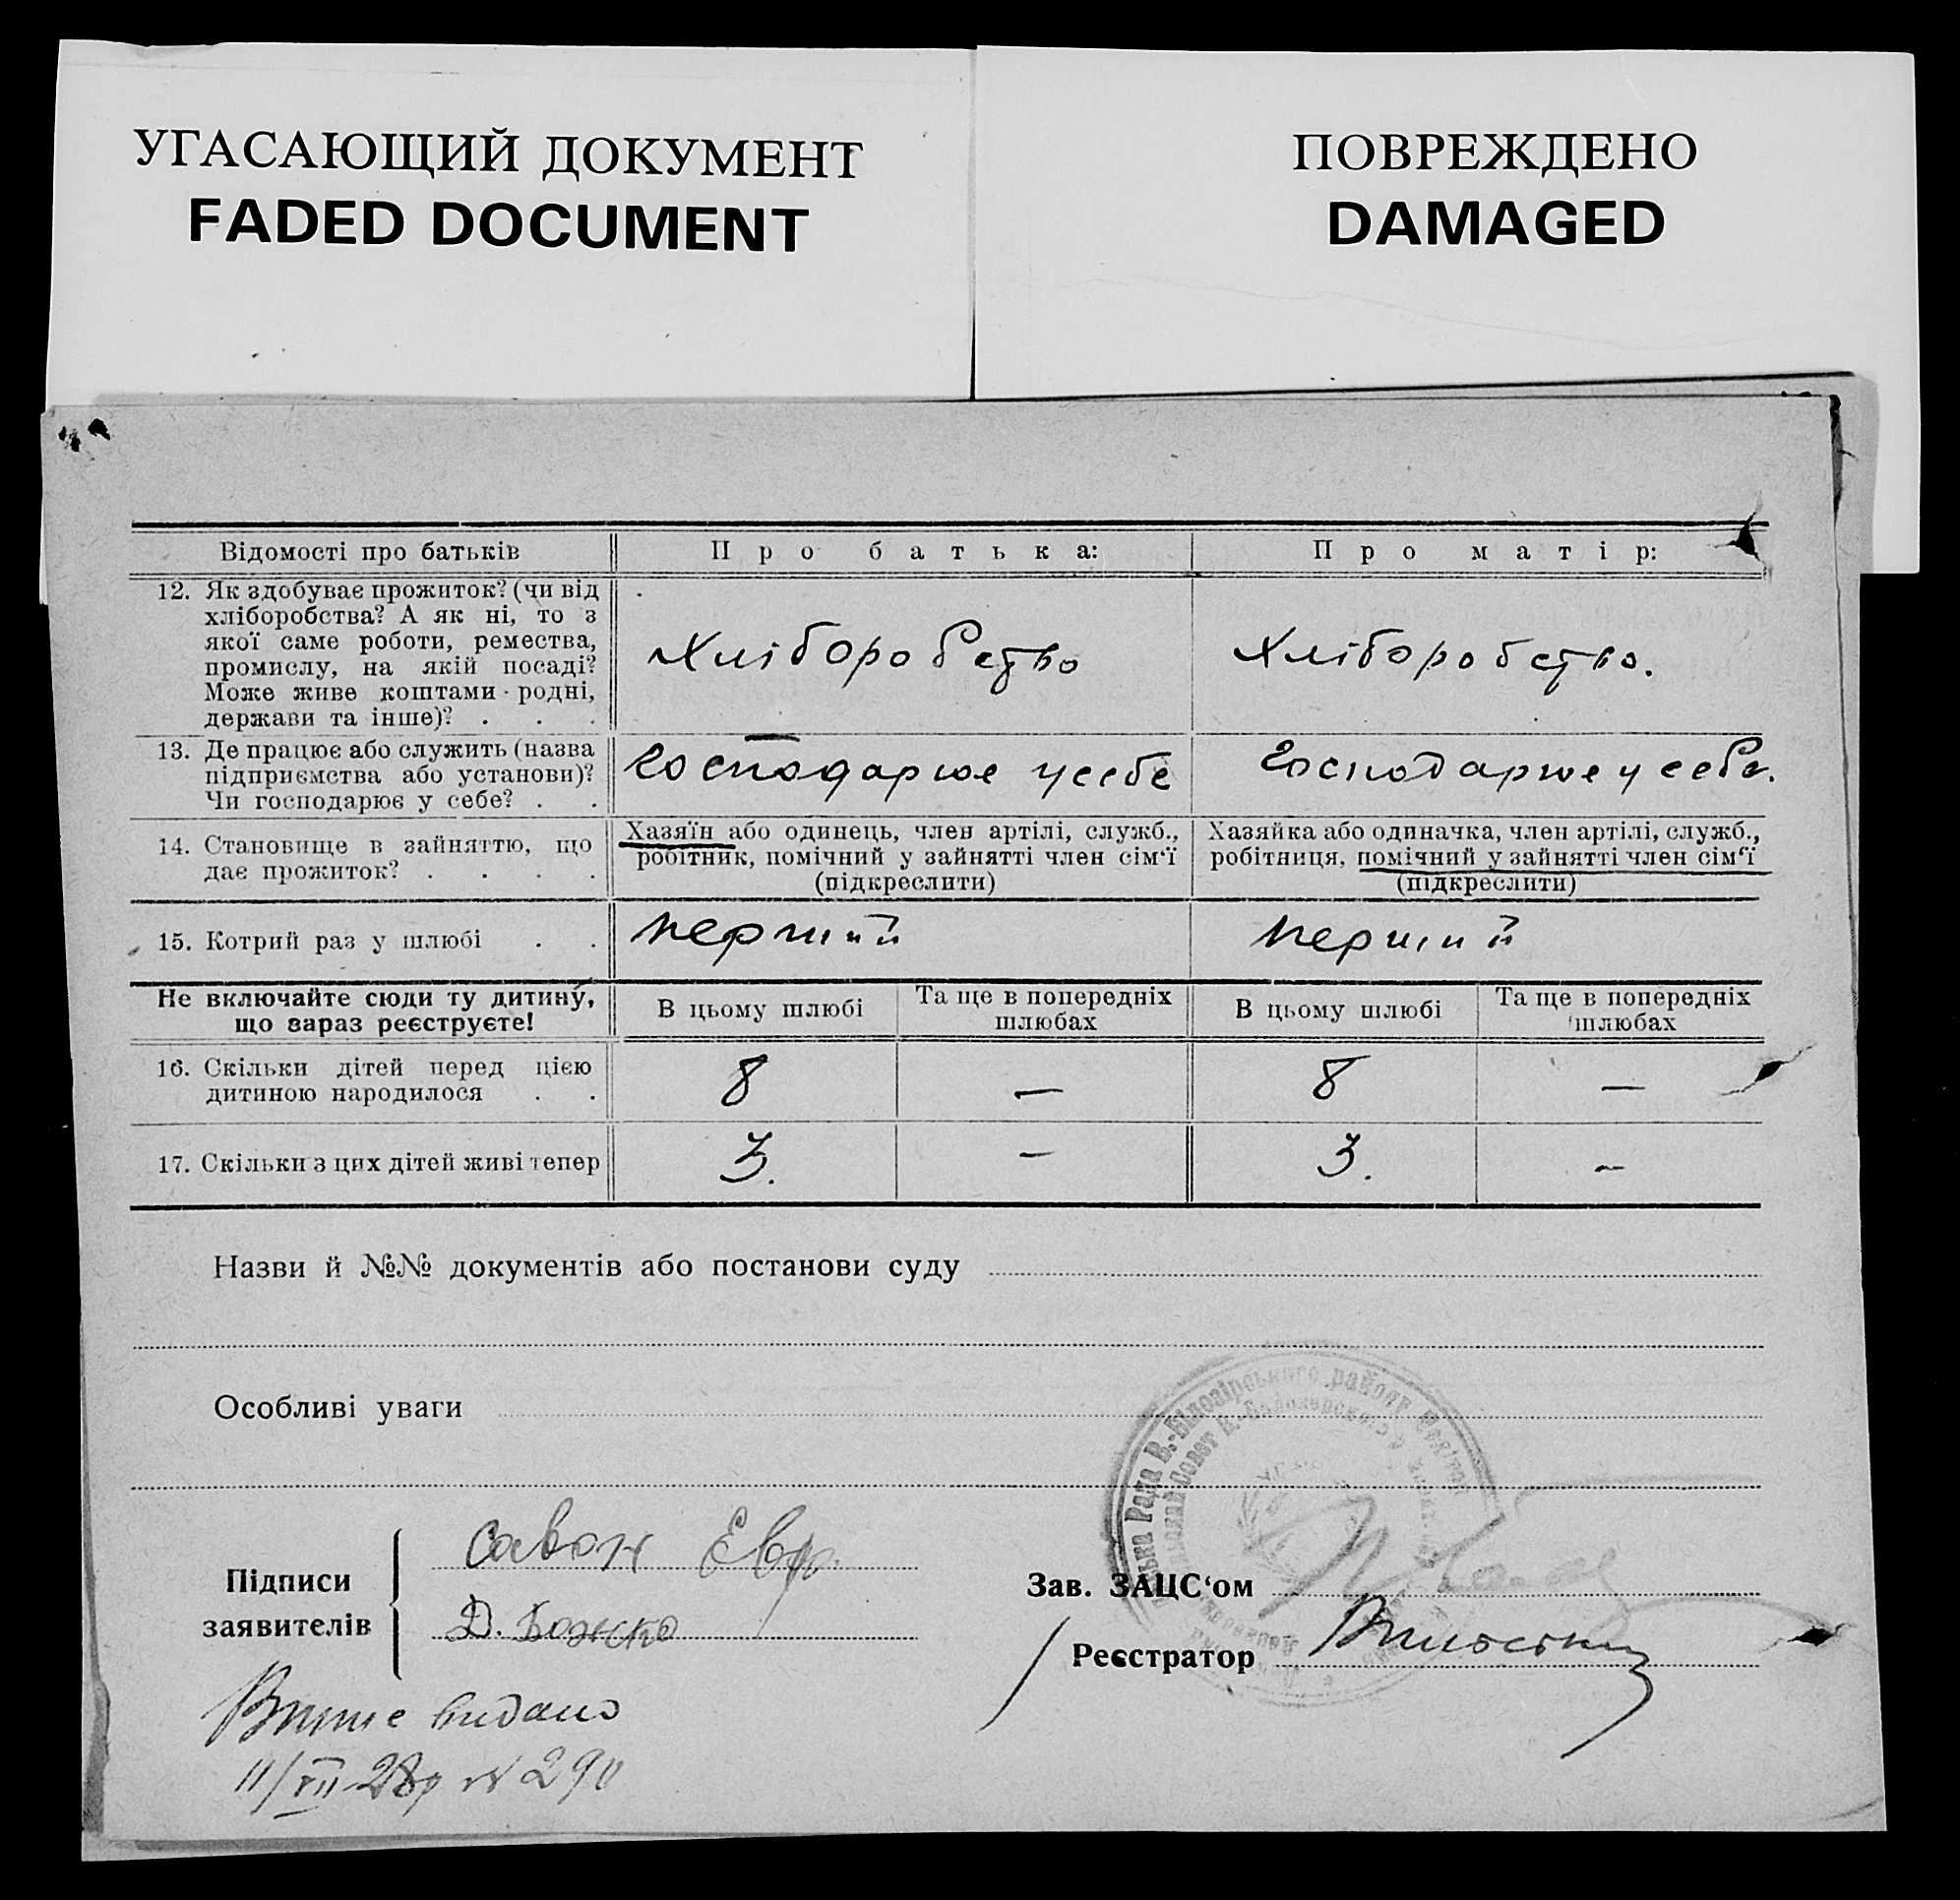 УГАСАЮЩИЙ ДОКУМЕНТ
FADED DOCUMENT
ПОВРЕЖДЕНО
DAMAGED
Відомості про батьків
Про батька:
Про матір:
12. Як здобуває прожиток? (чи від
хліборобства? А як ні, то з
якої саме роботи, ремества,
промислу, на якій посаді?
Може живе коштами родні,
держави та інше)? . . .
Хліборобство
Хліборобство.
13. Де працює або служить (назва
підприємства або установи)?
Чи господарює у себе? . .
Господарює у себе
Господарює у себе.
14. Становище в зайняттю, що
дає прожиток? . . . .
Хазяїн або одинець, член артілі, служб.,
робітник, помічний у зайнятті член сім‘ї
(підкреслити)
Хазяйка або одиначка, член артілі, служб.,
робітниця, помічний у зайнятті член сім‘ї
(підкреслити)
15. Котрий раз у шлюбі . .
перший
перший
Не включайте сюди ту дитину,
що зараз реєструєте!
В цьому шлюбі
Та ще в попередніх
шлюбах
В цьому шлюбі
Та ще в попередніх
шлюбах
16. Скільки дітей перед цією
дитиною народилося . .
8
—
8
—
17. Скільки з цих дітей живі тепер
3.
—
3.
—
Назви й №№ документів або постанови суду
Особливі уваги
Рада В.-Білозірського району
Совет В.-Белозерского
Підписи
заявителів
Савон Евр.
Д. Божко
Зав. ЗАЦС‘ом
Реєстратор
видано
11/VII-28р № 290